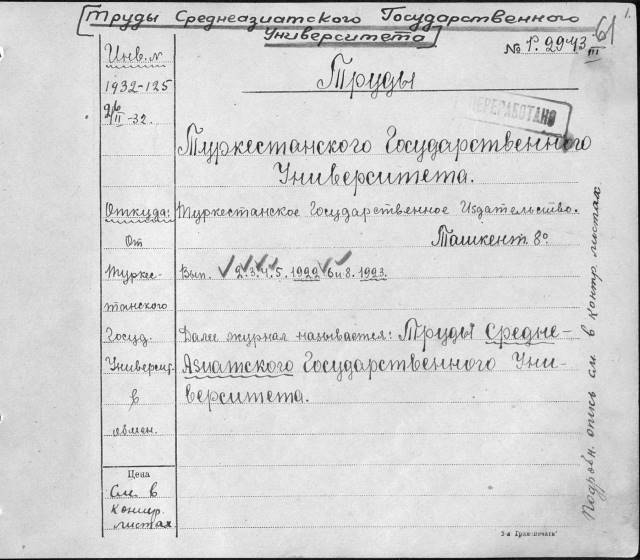 [Труды Среднеазиатского Государственного
Университета]
№ Р. 2943 61
III
1.
Инв. №
1932-125
26/II -32.
Труды
ПЕРЕРАБОТАНО
Туркестанского Государственного
Университета.
Откуда: Туркестанское Государственное Издательство.
От Ташкент. 8º
Туркес- Вып. 2. 3. 4. 5. 1922 6 и 8. 1923.
танского
Госуд. Далее журнал называется: Труды Средне-
Университ. Азиатского Государственного Уни-
в верситета.
обмен.
Цена
См. в
контр.
листах
Подробн. опись см. в контр. листах
3-я Граж. печать